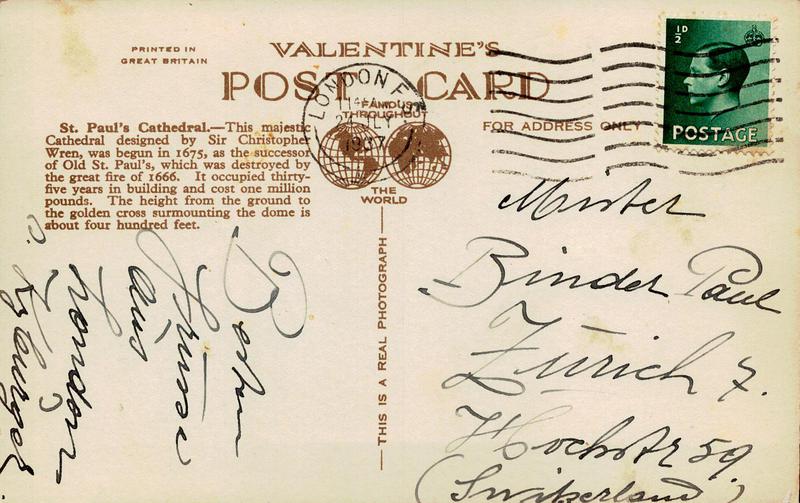 PRINTED IN
GREAT BRITAIN
VALENTINE'S
POST CARD
FAMOUS
THROUGHOUT
THE
WORLD
LONDON
1937
½D
POSTAGE
FOR ADDRESS ONLY
St. Paul's Cathedral.—This majestic
Cathedral designed by Sir Christopher
Wren, was begun in 1675, as the successor
of Old St. Paul's, which was destroyed by
the great fire of 1666. It occupied thirty-
five years in building and cost one million
pounds. The height from the ground to
the golden cross surmounting the dome is
about four hundred feet.
THIS IS A REAL PHOTOGRAPH
Besten
Grüsse
aus
London
Mister
Binder Paul
Zürich 7.
Hochstr 59
(Switzerland)